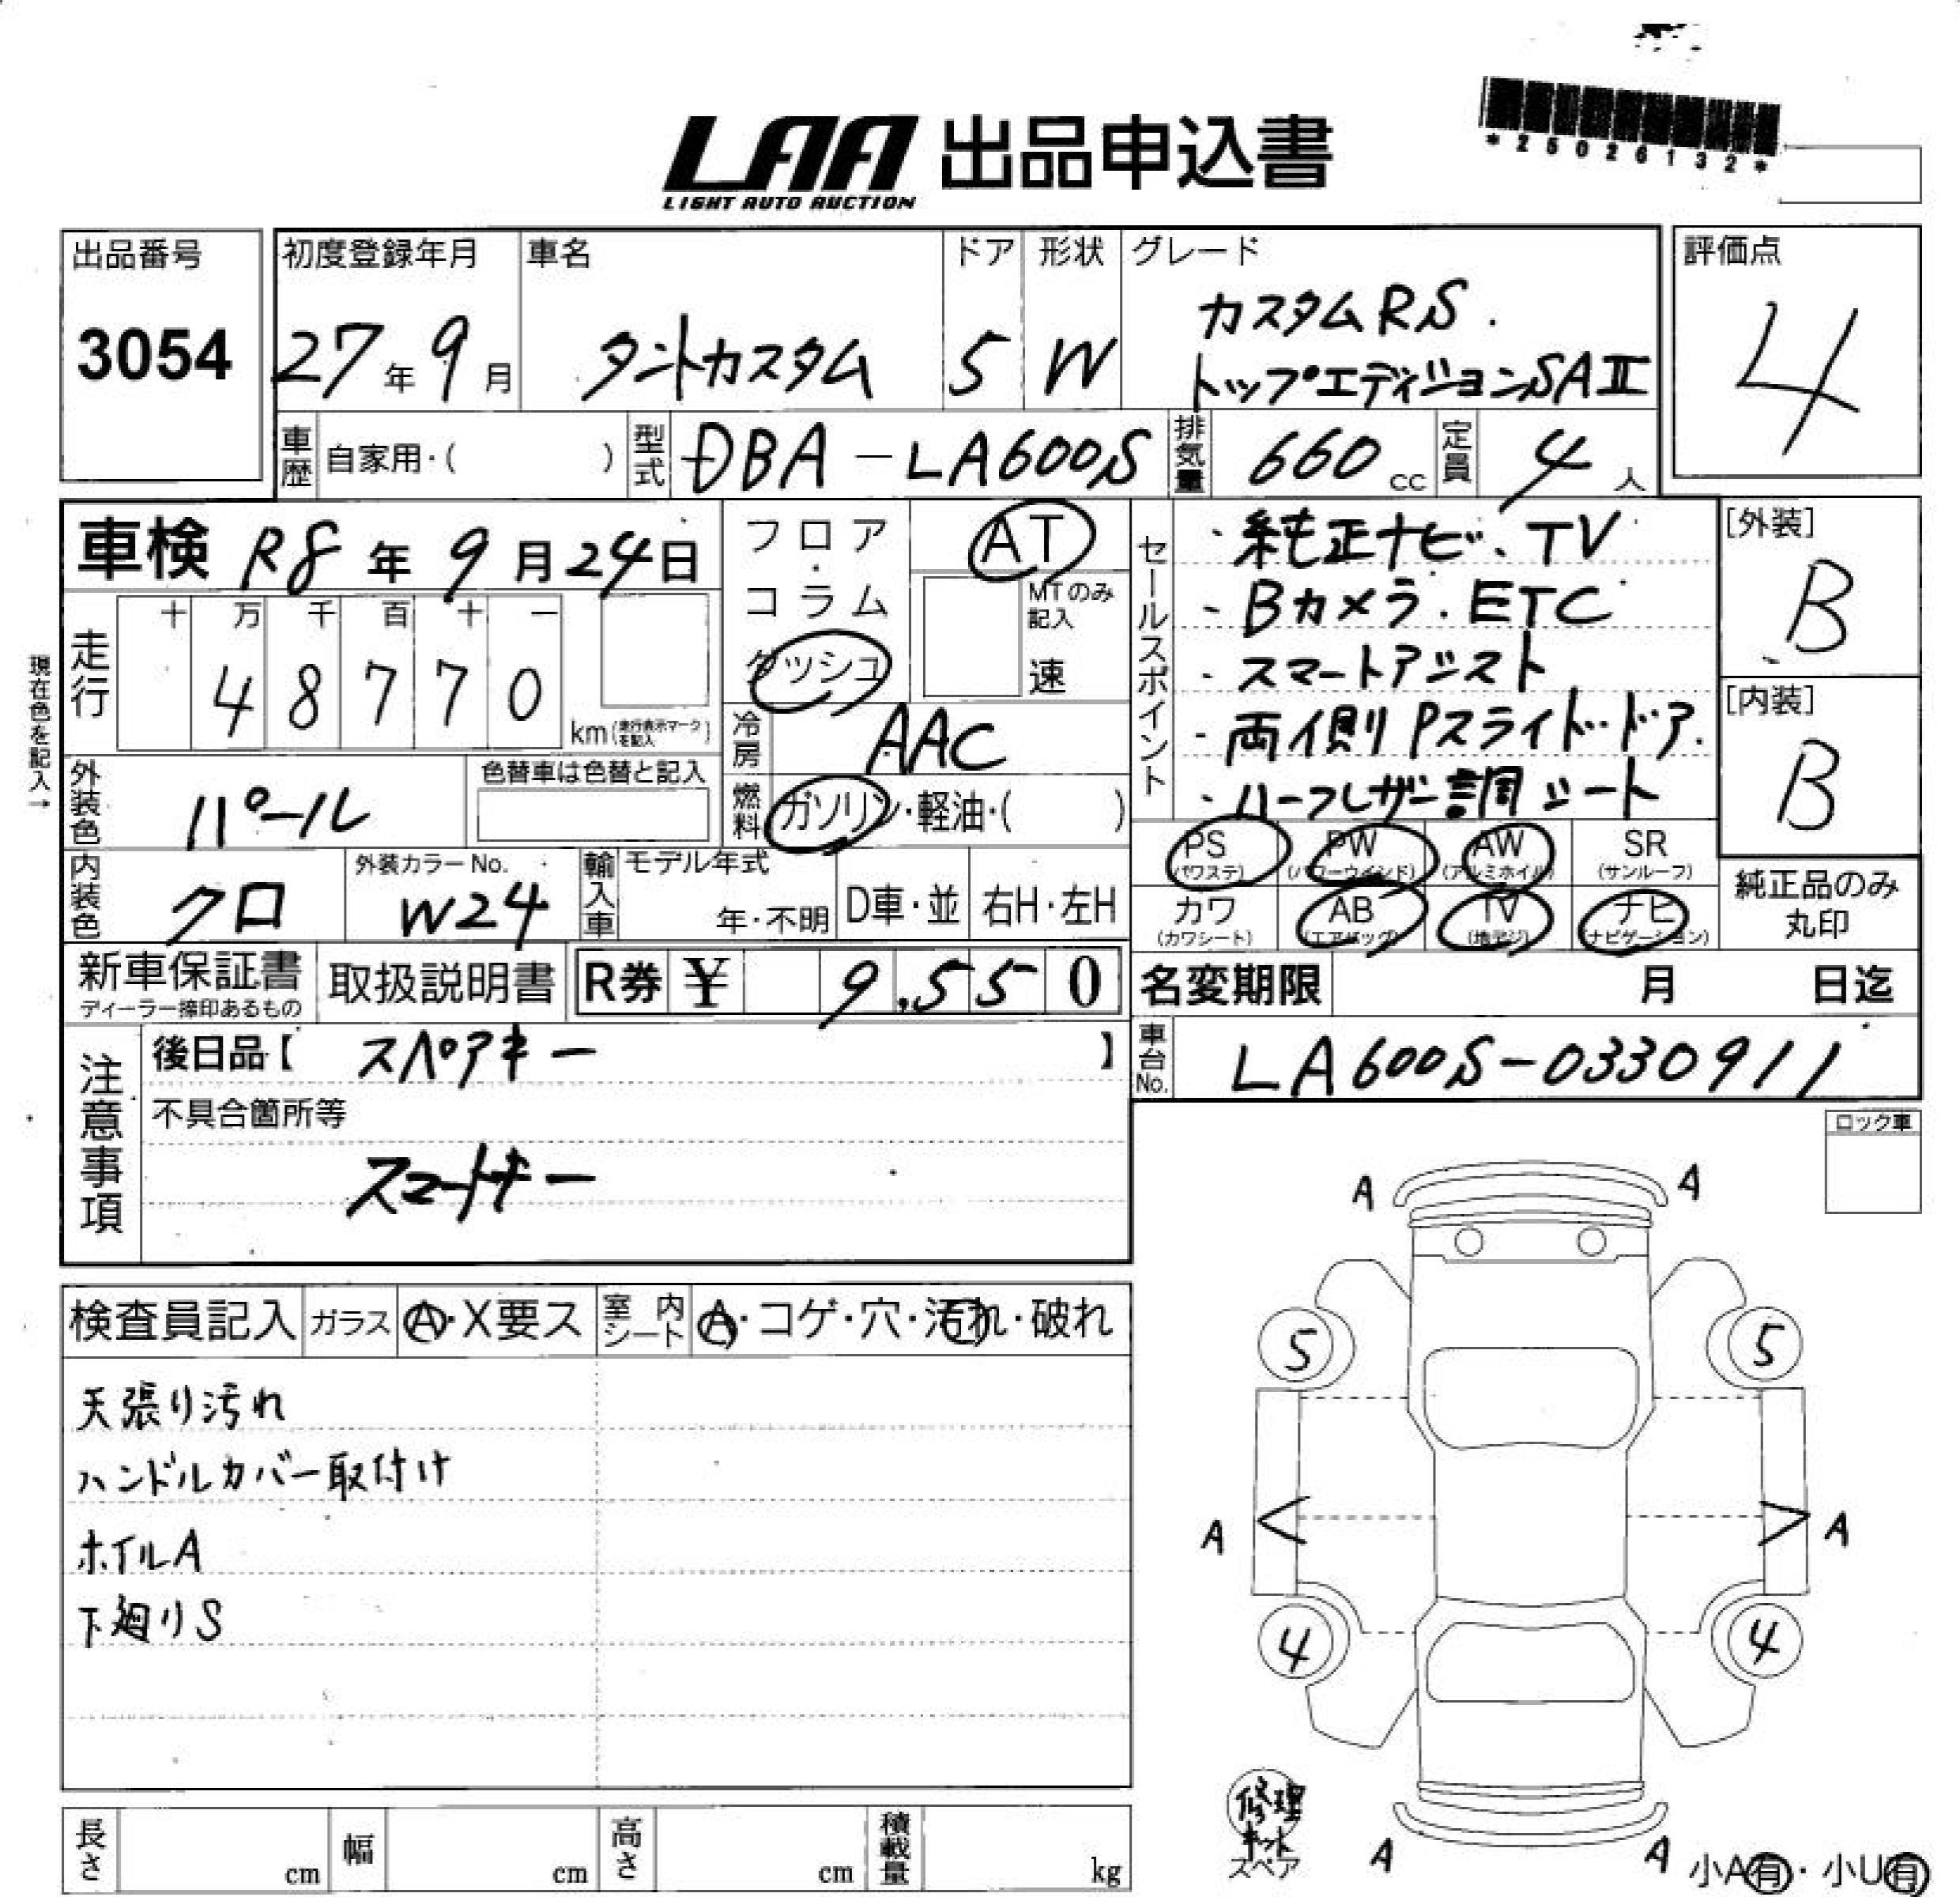 *25026132*
LAA 出品申込書
LIGHT AUTO AUCTION
出品番号 3054
初度登録年月 27年9月
車名 タントカスタム
ドア 5
形状 W
グレード カスタムRS.
トップエディションSAⅡ
評価点 4
車歴 自家用・( )
型式 DBA-LA600S
排気量 660cc
定員 4人
車検 R8年9月24日
走行 十 万 千 百 十 一
4 8 7 7 0
km(走行表示マークを記入)
現在色を記入→
フロア・コラム
ダッシュ
AT
MTのみ記入
速
冷房 AAC
燃料 ガソリン・軽油・( )
セールスポイント
・純正ナビ、TV
・Bカメラ.ETC
・スマートアシスト
・両側Pスライドドア.
・ハーフレザー調シート
[外装] B
[内装] B
外装色 パール
色替車は色替と記入
内装色 クロ
外装カラーNo. W24
輸入車 モデル年式
年・不明
D車・並
右H・左H
PS(パワステ) PW(パワーウインド) AW(アルミホイル) SR(サンルーフ)
カワ(カワシート) AB(エアバッグ) TV(地デジ) ナビ(ナビゲーション)
純正品のみ
丸印
新車保証書
ディーラー捺印あるもの
取扱説明書
R券 ¥ 9,550
名変期限 月 日迄
車台No. LA600S-0330911
注意事項
後日品【 スペアキー 】
不具合箇所等
スマートキー
ロック車
検査員記入 ガラス A・X要ス 室内シート A・コゲ・穴・汚れ・破れ
天張り汚れ
ハンドルカバー取付け
ホイルA
下廻りS
A A
5 5
A A
4 4
修理
キット
スペア
A A
小A有・小U有
長さ cm 幅 cm 高さ cm 積載量 kg